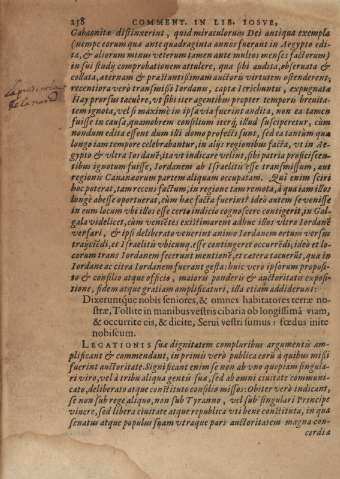 238 COMMENT. IN LIB. IOSVE,
Gabaonitæ distinxerint, quid miraculorum Dei antiqua exempla
(nempe eorum quæ ante quadraginta annos fuerant in Aegypto edi-
ta, & aliorum minus veterum tamen ante multos menses factorum)
in sui studij comprobationem attulere, quæ sibi audita, obseruata &
collata, æternam & præstantissimam auctoris virtutem ostenderent;
recentiora verò transmissi Iordani, captæ Ierichuntis, expugnatæ
Hay prorsus tacuêre, vt sibi iter agentibus propter temporu breuita-
tem ignota, vel si maximè in ipsa via fuerint audita, non ea tamen
fuisse in causa, quamobrem consilium itinerū illud susciperetur, cùm
nondum edita essent dum illi domo profecti sunt, sed ea tantùm quæ
longo iam tempore celebrabantur, in alijs regionibus facta, vt in Ae-
gypto & vltra Iordanē, ita vt indicare velint, sibi patria proficiscen-
tibus ignotum fuisse, Iordanem ab Israelitis esse transmissum, aut
regionis Cananæorum partem aliquam occupatam. Qui enim sciri
hoc poterat, tam recens factum, in regione tam remota, à qua iam illos
longè abesse oportuerat, cùm hæc facta fuerint? ideò autem se venisse
in eum locum vbi illos esse certo indicio cognoscere contigerit, in Gal-
gala videlicet, cùm venientes existimarent adhuc illos vltra Iordanē
versari, & ipsi deliberato venerint animo Iordanem ortum versus
traijciēdi, et Israelitis vbicunq. esse contingeret occurrēdi, ideò et lo-
corum trans Iordanem fecerunt mentionē, et cætera tacuerūt, quæ in
Iordane ac citra Iordanem fuerant gesta: huic verò ipsorum proposi-
to & consilio atque officio, maioris ponderis & auctoritatis exposi-
tione, fidem atque gratiam amplificaturi, illa etiam addiderunt:
Dixeruntque nobis seniores, & omnes habitatores terræ no-
stræ, Tollite in manibus vestris cibaria ob longissimā viam,
& occurrite eis, & dicite, Serui vestri sumus: fœdus inite
nobiscum.
LEGATIONIS suæ dignitatem compluribus argumentis am-
plificant & commendant, in primis verò publica eorū à quibus missi
fuerint auctoritate. Significant enim se non ab vno quopiam singula-
ri viro, vel à tribu aliqua gentis suæ, sed ab omni ciuitate communi-
cato, deliberato atque constituto consilio missos: Obiter verò indicant,
se non sub rege aliquo, non sub Tyranno, vel sub singulari Principe
viuere, sed libera ciuitate atque republica vti bene constituta, in qua
senatus atque populus suam vtraque pars auctoritatem magna con-
cordia